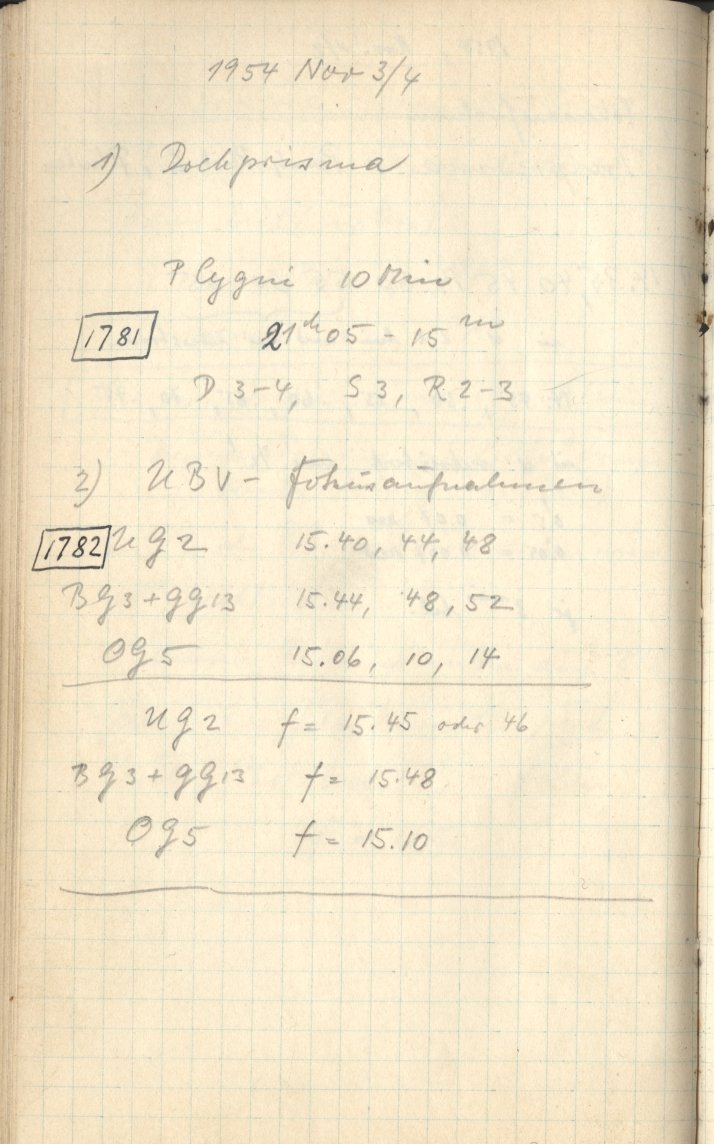 1954 Nov 3/4
1) Dochprisma
P Cygni 10 Min
1781 21h 05 - 15 m
D 3-4, S 3, R 2-3
2) UBV - Fokusaufnahmen
1782 UG2 15.40, 44, 48
BG3 + GG13 15.44, 48, 52
OG5 15.06, 10, 14
UG2 f = 15.45 oder 46
BG3 + GG13 f = 15.48
OG5 f = 15.10